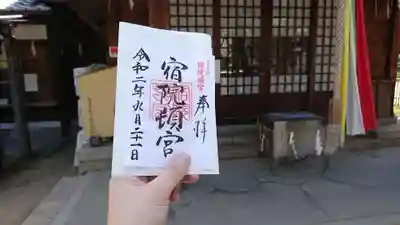 奉拝
宿院頓宮
令和二年九月二十一日